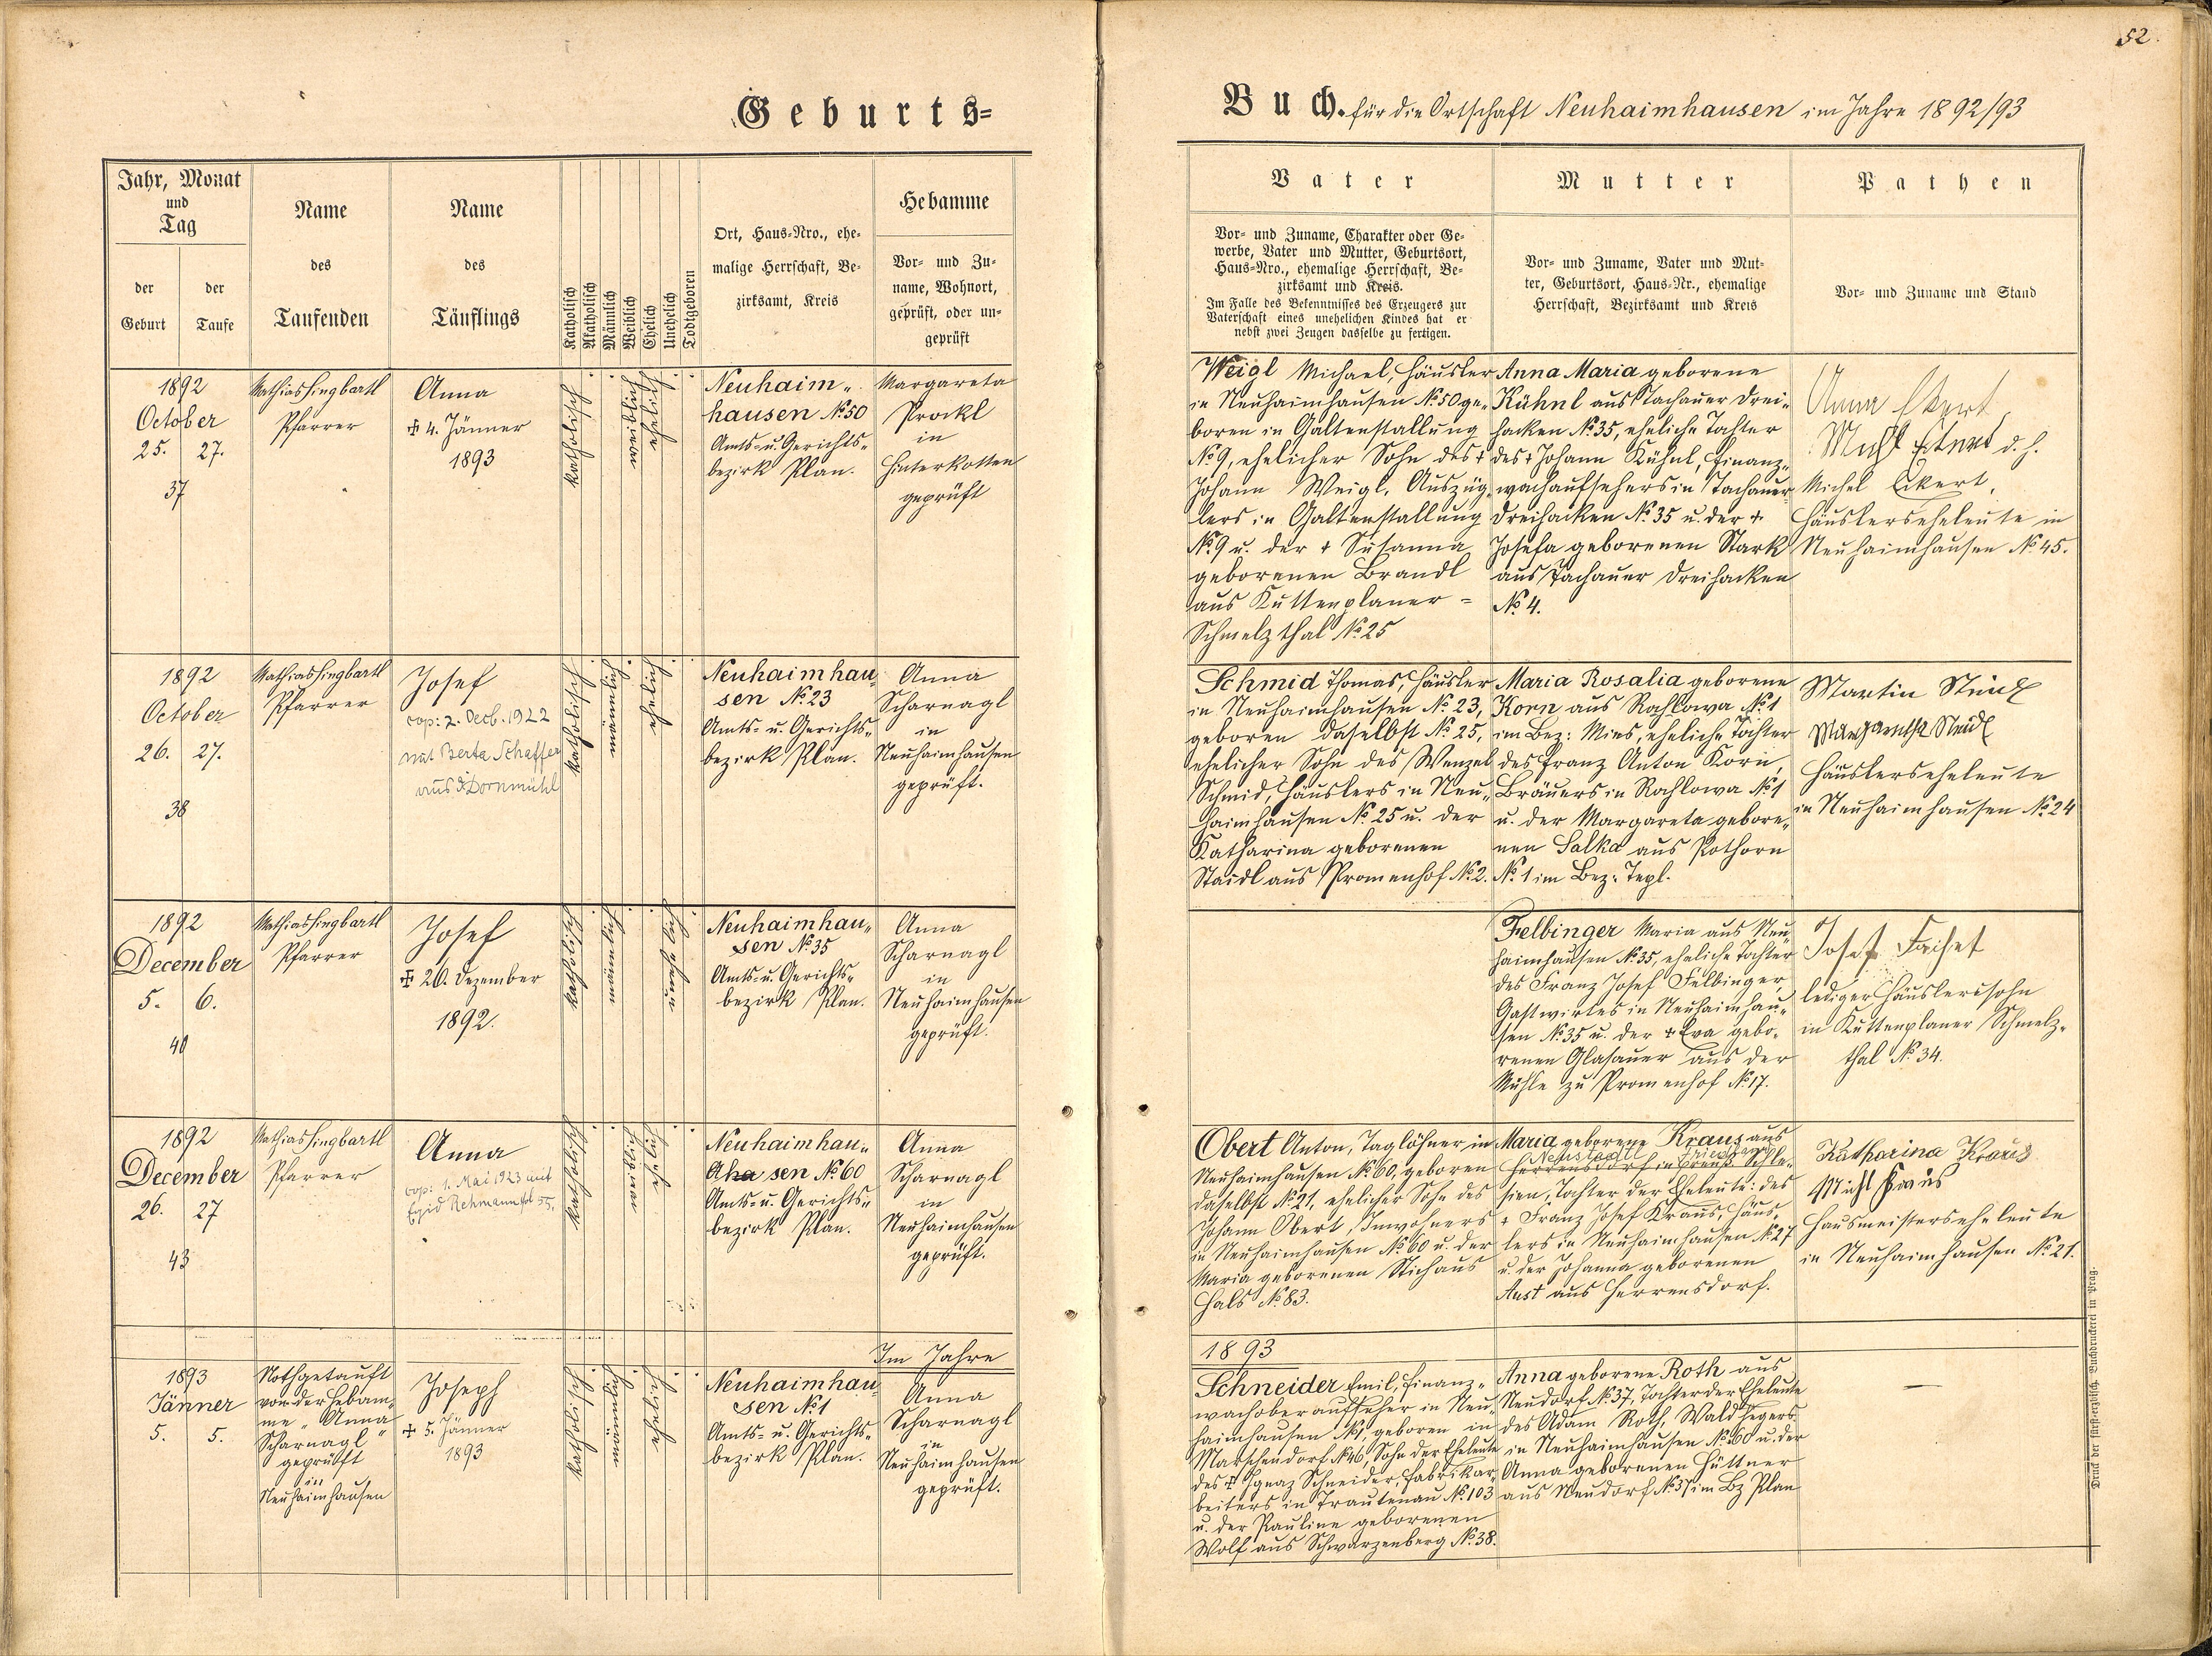 52.
Geburts=
Buch. für die Ortschaft Neuhaimhausen im Jahre 1892/93
Jahr, Monat
und
Tag
der
Geburt
der
Taufe
Name
des
Taufenden
Name
des
Täuflings
Katholisch
Akatholisch
Männlich
Weiblich
Ehelich
Unehelich
Todtgeboren
Ort, Haus-Nro., ehe-
malige Herrschaft, Be-
zirksamt, Kreis
Hebamme
Vor- und Zu-
name, Wohnort,
geprüft, oder un-
geprüft
Vater
Vor- und Zuname, Charakter oder Ge-
werbe, Vater und Mutter, Geburtsort,
Haus-Nro., ehemalige Herrschaft, Be-
zirksamt und Kreis.
Im Falle des Bekenntnisses des Erzeugers zur
Vaterschaft eines unehelichen Kindes hat er
nebst zwei Zeugen dasselbe zu fertigen.
Mutter
Vor- und Zuname, Vater und Mut-
ter, Geburtsort, Haus-Nr., ehemalige
Herrschaft, Bezirksamt und Kreis
Pathen
Vor- und Zuname und Stand
1892
October
25. 27.
37
Mathias Singbartl
Pfarrer
Anna
✠ 4. Jänner
1893
katholisch
weiblich
ehelich
Neuhaim-
hausen № 50
Amts- u. Gerichts-
bezirk Plan.
Margareta
Prockl
in
Hinterkotten
geprüft
Weigl Michael, Häusler
in Neuhaimhausen № 50 ge-
boren in Galtenstallung
№ 9, ehelicher Sohn des †
Johann Weigl, Auszüg-
lers in Galtenstallung
№ 9 u. der † Susanna
geborenen Brandl
aus Kuttenplaner =
Schmelzthal № 25
Anna Maria geborene
Kühnl aus Tachauer Drei-
hacken № 35, eheliche Tochter
des † Johann Kühnl, Finanz-
wachaufsehers in Tachauer
Dreihacken № 35 u. der †
Josefa geborenen Stark
aus Tachauer Dreihacken
№ 4.
Anna Ekert
d. h.
Michel Eckert,
Häuslerseheleute in
Neuhaimhausen № 45.
1892
October
26. 27.
38
Mathias Singbartl
Pfarrer
Josef
cop: 2. Decb. 1922
mit Berta Schaffer
aus Dornmühl
katholisch
männlich
ehelich
Neuhaimhau-
sen № 23
Amts- u. Gerichts-
bezirk Plan.
Anna
Scharnagl
in
Neuhaimhausen
geprüft.
Schmid Thomas, Häusler
in Neuhaimhausen № 23,
geboren daselbst № 25,
ehelicher Sohn des Wenzel
Schmid, Häuslers in Neu-
haimhausen № 25 u. der
Katharina geborenen
Staidl aus Promenhof № 2.
Maria Rosalia geborene
Korn aus Rachlowa № 1
im Bez: Mies, eheliche Tochter
des Franz Anton Korn,
Bräuers in Rachlowa № 1
u. der Margareta gebore-
nen Salka aus Pothorn
№ 1 im Bez: Tepl.
Martin Steidl
Margaretha Steidl
Häuslerseheleute
in Neuhaimhausen № 24
1892
December
5. 6.
40
Mathias Singbartl
Pfarrer
Josef
✠ 20. Dezember
1892.
katholisch
männlich
unehelich
Neuhaimhau-
sen № 35
Amts- u. Gerichts-
bezirk Plan.
Anna
Scharnagl
in
Neuhaimhausen
geprüft.
Felbinger Maria aus Neu-
haimhausen № 35, eheliche Tochter
des Franz Josef Felbinger,
Gastwirtes in Neuhaimhau-
sen № 35 u. der † Eva gebo-
renen Glasauer aus der
Mühle zu Promenhof № 17.
Josef
lediger Häuslerssohn
in Kuttenplaner Schmelz-
thal № 34.
1892
December
26. 27
43
Mathias Singbartl
Pfarrer
Anna
cop: 1. Mai 1923 mit
Egid Rehmann fol 55.
katholisch
weiblich
ehelich
Neuhaimhau-
sen № 60
Amts- u. Gerichts-
bezirk Plan.
Anna
Scharnagl
in
Neuhaimhausen
geprüft.
Obert Anton, Taglöhner in
Neuhaimhausen № 60, geboren
daselbst № 21, ehelicher Sohn des
Johann Obert, Inwohners
in Neuhaimhausen № 60 u. der
Maria geborenen Stich aus
Hals № 83.
Maria geborene Kraus aus
Neustadtl
Herrensdorf in Preuß. Schle-
sien, Tochter der Eheleute: des
† Franz Josef Kraus, Häus-
lers in Neuhaimhausen № 27
u. der Johanna geborenen
Aust aus Herrensdorf.
Katharina Kraus
Michl Kraus
Hausmeisterseheleute
in Neuhaimhausen № 21.
Im Jahre
1893
1893
Jänner
5. 5.
Nothgetauft
von der Hebam-
me „Anna
Scharnagl"
geprüft
in
Neuhaimhausen
Joseph
✠ 5. Jänner
1893
katholisch
männlich
ehelich
Neuhaimhau-
sen № 1
Amts- u. Gerichts-
bezirk Plan.
Anna
Scharnagl
in
Neuhaimhausen
geprüft.
Schneider Emil, Finanz-
wachoberaufseher in Neu-
haimhausen № 1, geboren in
Marschendorf № 46, Sohn der Eheleute
des † Ignaz Schneider, Fabrikar-
beiters in Trautenau № 103
u. der Pauline geborenen
Wolf aus Schwarzenberg № 38.
Anna geborene Roth aus
Neudorf № 37, Tochter der Eheleute
des Adam Roth, Waldhegers
in Neuhaimhausen № 60 u. der
Anna geborenen Hüttner
aus Neudorf № 37 im Bz Plan
—
Druck der fürst-erzbischöfl. Buchdruckerei in Prag.